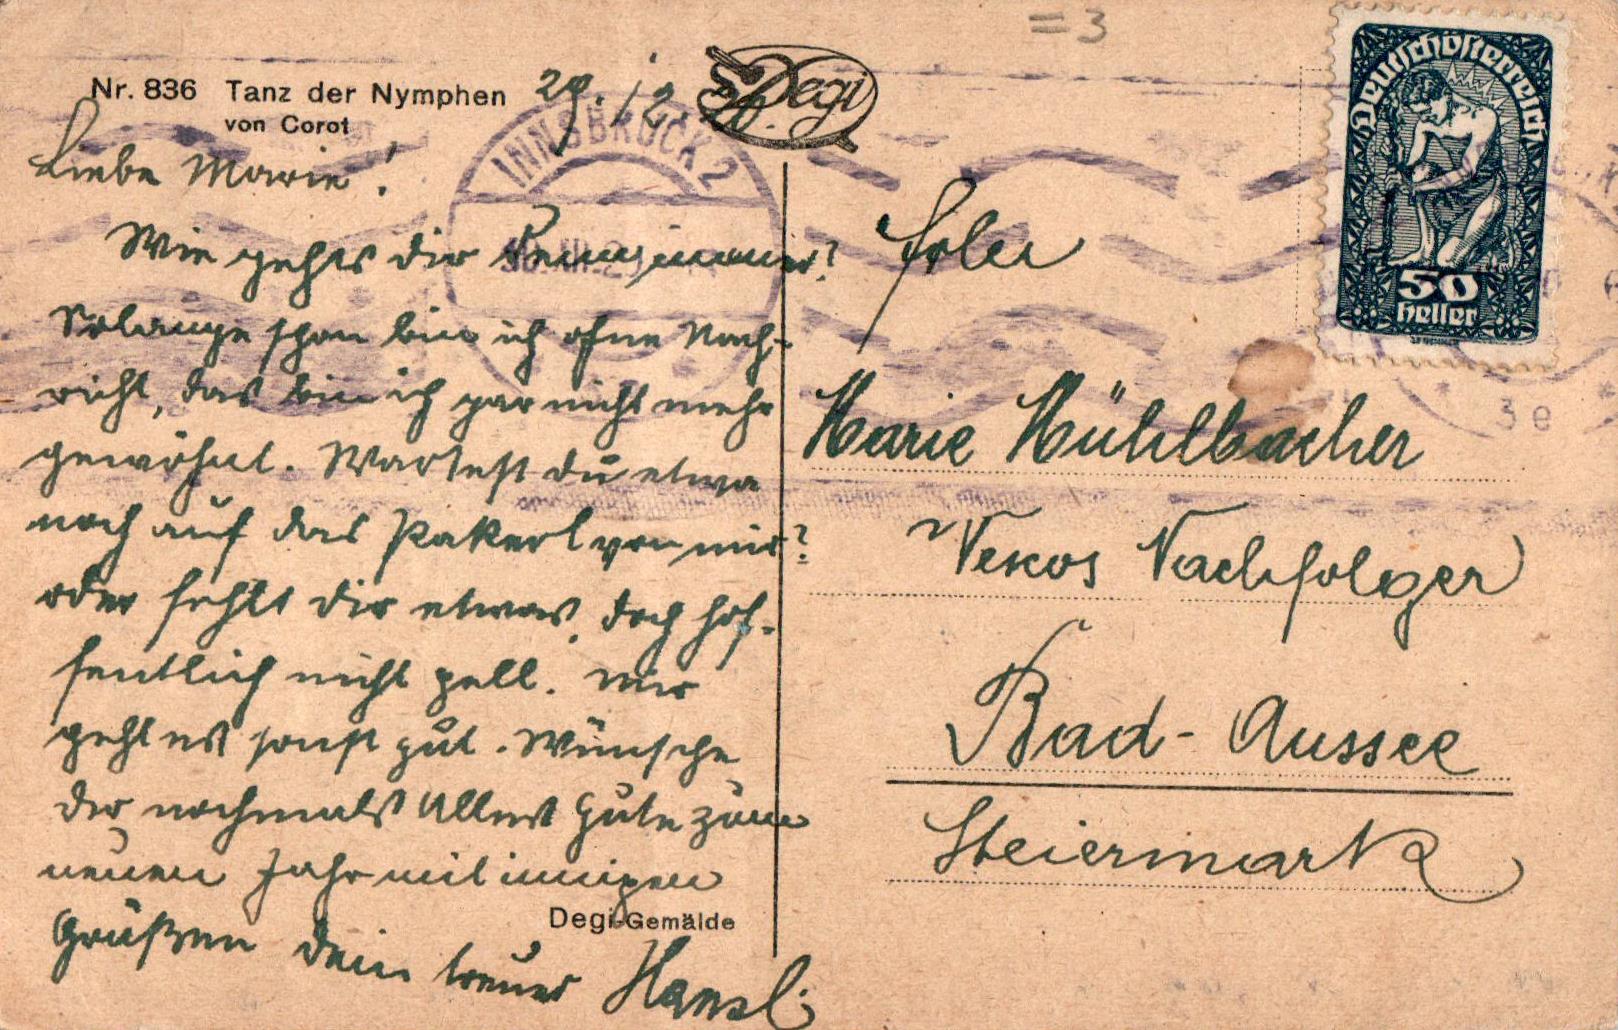 = 3
Nr. 836 Tanz der Nymphen
von Corot
29. 12.
Degi
INNSBRUCK 2
Liebe Marie!
Wie gehts dir denn immer?
Solange schon bin ich ohne Nach-
richt, das bin ich gar nicht mehr
gewöhnt. Wartest du etwa
noch auf das Pakerl von mir?
oder fehlt dir etwas, doch hof-
fentlich nicht gell. Mir
geht es sonst gut. Wünsche
dir nochmals Alles Gute zum
neuen Jahr mit innigen
Grüßen dein treuer Hansl.
Degi-Gemälde
Deutschösterreich
50
heller
3e
Marie Mühlbacher
Nachfolger
Bad-Aussee
Steiermark